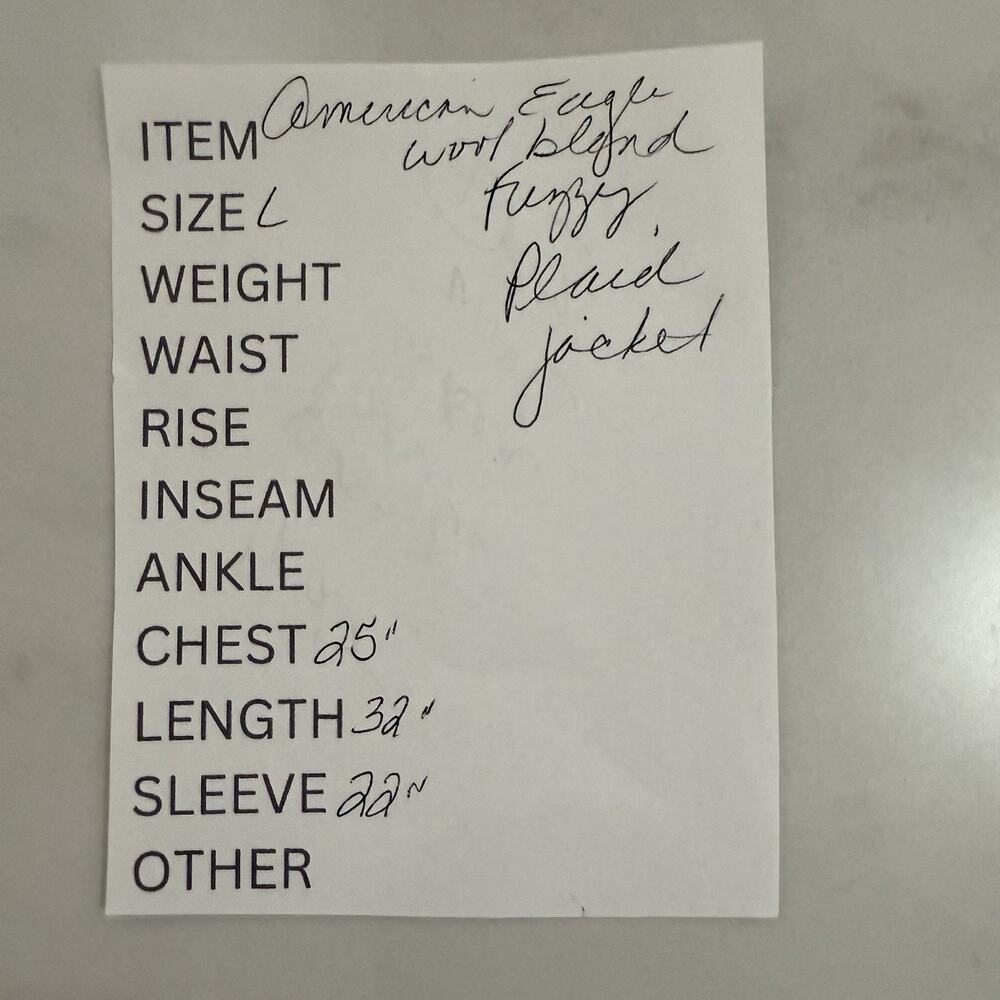 ITEM American Eagle
wool blend
SIZE L
Fuzzy
WEIGHT
Plaid
WAIST
jacket
RISE
INSEAM
ANKLE
CHEST 25"
LENGTH 32"
SLEEVE 22"
OTHER